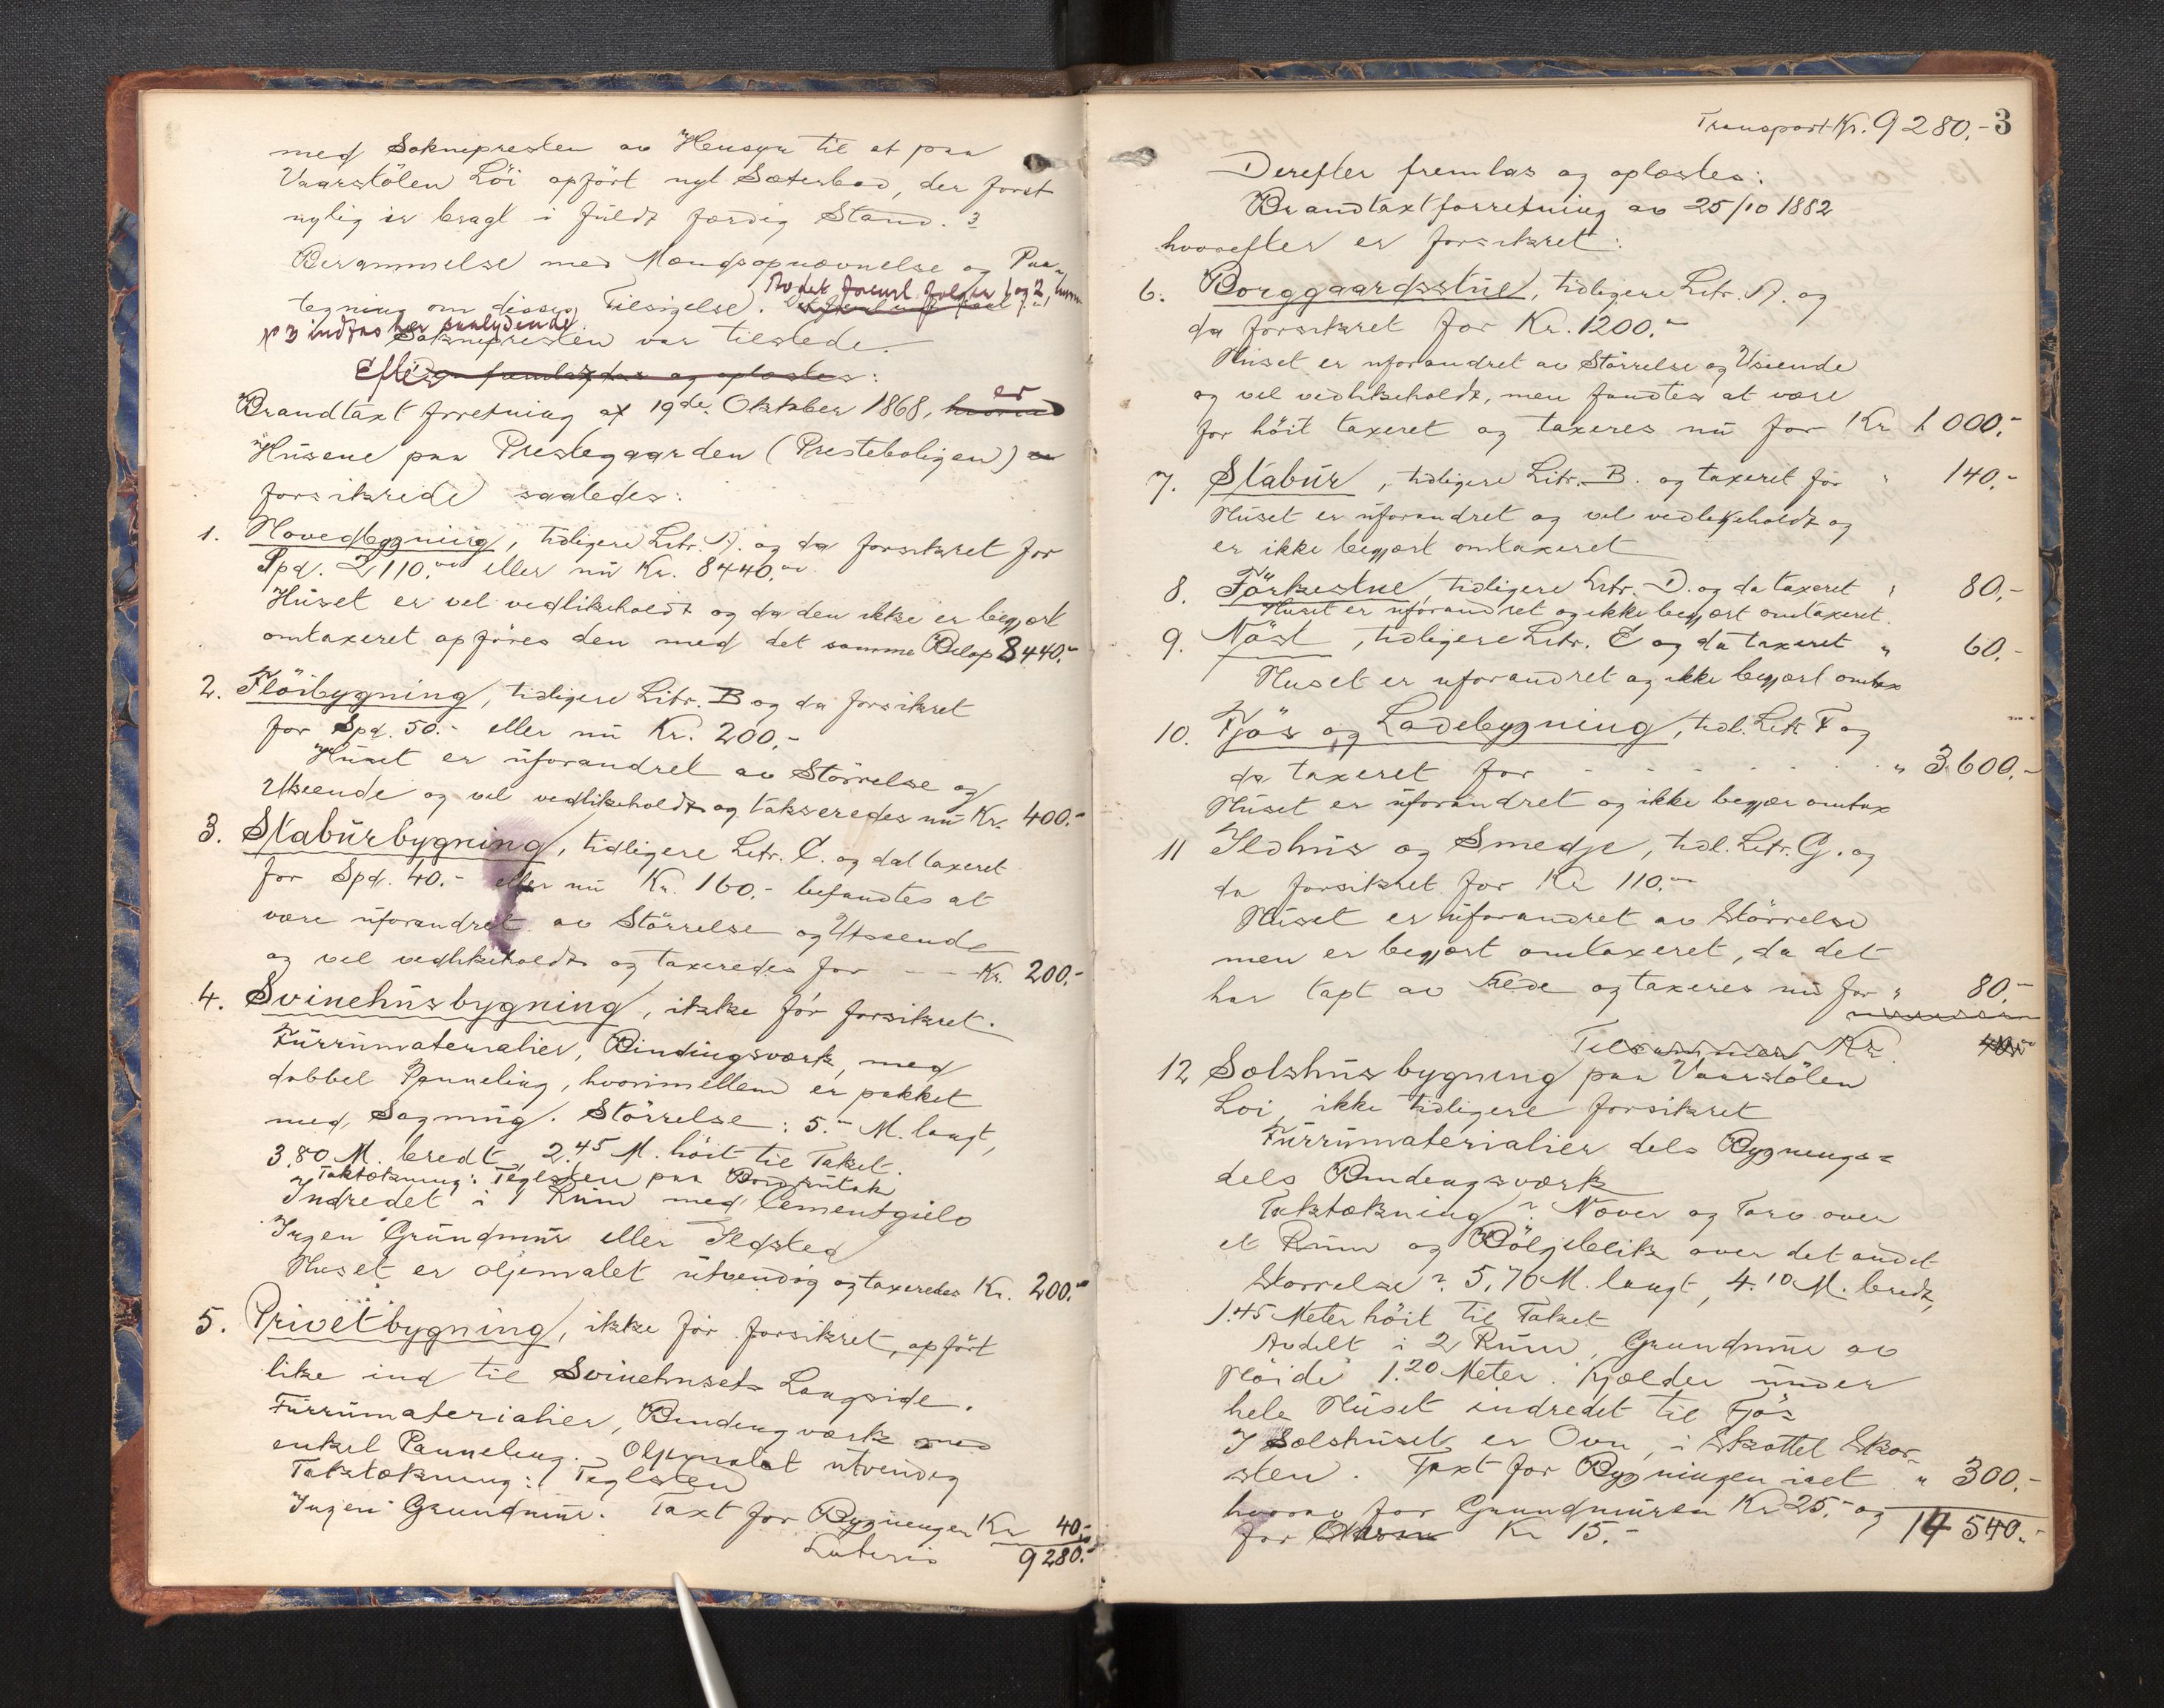 med Soknepresten av Hensyn til at paa
Vaarstölen Löi opfört nyt Sæterbod, der först
nylig er bragt i fuldt færdig Stand. 3
Berammelse med Mændsopnævnelse og Paa-
Av det forevl. følger 1 og 2, mens
tegning om disses Tilsigelse.
№ 3 indtas her saalydende:
Soknepresten var tilstede.
Efter fremlagdes og oplæstes:
Brandtaxtforretning af 19de Oktober 1868, hvorved er
Husene paa Prestegaarden (Presteboligen)
forsikrede saaledes:
1. Hovedbygning, tidligere Litr. A. og da forsikret for
Spd. 2110.00 eller nu Kr. 8440.00
Huset er vel vedlikeholdt og da den ikke er begjært
omtaxeret opföres den med det samme Belöp 8440.-
2. Flöibygning, tidligere Litr. B og da forsikret
for Spd. 50.- eller nu Kr. 200.-
Huset er uforandret av Störrelse og
Utseende og vel vedlikeholdt og takseredes nu Kr. 400.-
3. Staburbygning, tidligere Litr. C. og dal taxeret
for Spd. 40.- eller nu Kr. 160.- befandtes at
være uforandret av Störrelse og Utseende
og vel vedlikeholdt og taxeredes for - - - Kr. 200.-
4. Svinehusbygning, ikke för forsikret.
Furrumaterialier, Bindingsværk, med
dobbel Panneling, hvorimellem er pakket
med Sagmug. Störrelse: 5.- M. langt,
3.80 M. bredt 2.45 M. höit til Taket.
Taktækning: Teglsten paa Bordsutak
Indredet i 1 Rum med Cementgulv
Ingen Grundmur eller Ildsted
Huset er oljemalet utvendig og taxeredes Kr. 200.-
5. Privetbygning, ikke för forsikret, opfört
like ind til Svinehusets Langside.
Furrumaterialier, Bindingværk med
enkel Panneling. Oljemalet utvendig
Taktækning: Teglsten
Ingen Grundmur. Taxt for Bygningen Kr 40.-
Lateris 9280.-
Transport Kr. 9280.- 3
Derefter fremlas og oplæstes:
Brandtaxtforretning av 25/10 1882
hvorefter er forsikret:
6. Borggaardsstue, tidligere Litr. A. og
da forsikret for Kr. 1200.-
Huset er uforandret av Störrelse og Utseende
og vel vedlikeholdt, men fandtes at være
for höit taxeret og taxeres nu for Kr 1000.-
7. Stabur, tidligere Litr. B. og taxeret for " 140.-
Huset er uforandret og vel vedlikeholdt og
er ikke begjært omtaxeret
8. Törkestue, tidligere Litr. D. og da taxeret " 80.-
Huset er uforandret og ikke begjært omtaxeret.
9. Nöst, tidligere Litr. E og da taxeret " 60.-
Huset er uforandret og ikke begjært omtax
10. Fjös og Ladebygning, tidl. Litr F og
da taxeret for - - - - - - " 3600.-
Huset er uforandret og ikke begjær omtax
11 Ildhus og Smedje, tidl. Litr. G. og
da forsikret for Kr 110.-
Huset er uforandret av Störrelse
men er begjært omtaxeret, da det
har tapt av Rede og taxeres nu for " 80.-
Tilsammen Kr.
12 Sælshusbygning paa Vaarstölen
Loi, ikke tidligere forsikret
Furrumaterialier dels Bygnings-
dels Bindingsværk
Taktækning: Næver og Torv over
et Rum og Bölgeblik over det andet
Störrelse: 5,70 M. langt, 4.10 M. bredt,
1.45 Meter höit til Taket
Avdelt i 2 Rum, Grundmur av
Höide 1.20 Meter. Kjælder under
hele Huset indredet til Fjös
I Sælshuset er Ovn, i Skottet Skor-
sten. Taxt for Bygningen ialt " 300.-
hvorav for Grundmuren Kr 25.- og
for Ovnen Kr 15.- 14540.-